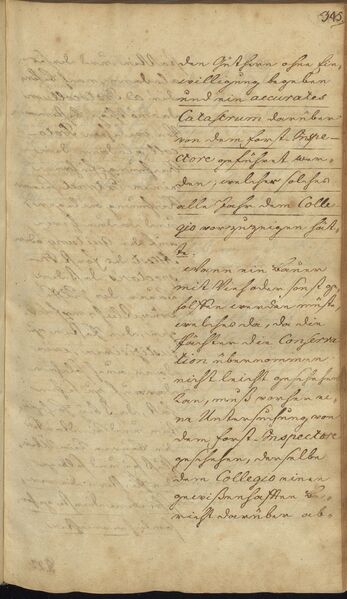 345.
den Güthern ohne Ein,
willigung begeben
und ein accurates
Catastrum darüber
von dem Forst-Inspe-
ctore geführet wer-
den, welcher solches
alle Jahr dem Colle-
gio vorzuzeigen hät-
te.
Wann ein Bauer
mit Vieh oder sonst ge-
holffen werden müste
welches da, da die
Pächter die Conserva-
tion übernommen
nicht leicht geschehen
kan, muß vorhero ei,
ne Untersuchung von
dem Forst Inspectore
geschehen, derselbe
dem Collegio einen
gewißenhafften Be-
richt darüber ab-